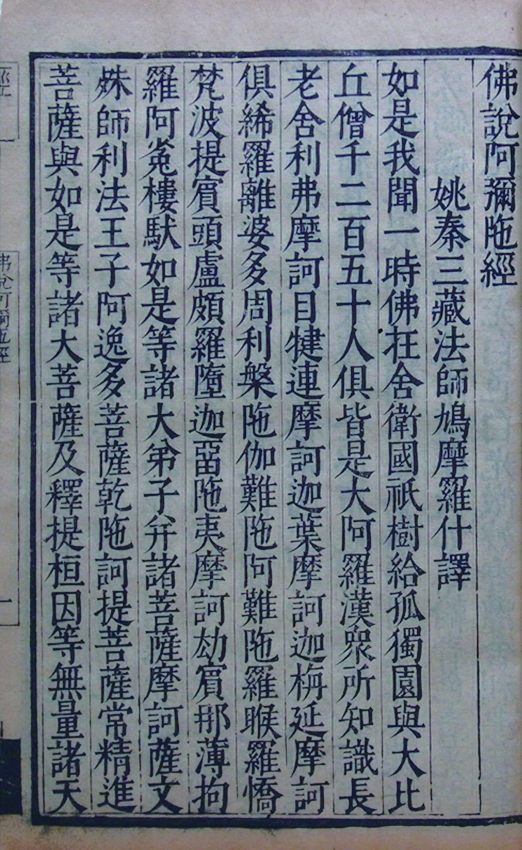 佛說阿彌陁經
姚秦三藏法師鳩摩羅什譯
如是我聞一時佛在舍衛國祇樹給孤獨園與大比
丘僧千二百五十人俱皆是大阿羅漢衆所知識長
老舍利弗摩訶目犍連摩訶迦葉摩訶迦栴延摩訶
俱絺羅離婆多周利槃陁伽難陁阿難陁羅睺羅憍
梵波提賔頭盧頗羅墮迦畱陁夷摩訶劫賔那薄拘
羅阿㝹樓馱如是等諸大弟子并諸菩薩摩訶薩文
殊師利法王子阿逸多菩薩乾陁訶提菩薩常精進
菩薩與如是等諸大菩薩及釋提桓因等無量諸天
佛說阿彌陁經
一